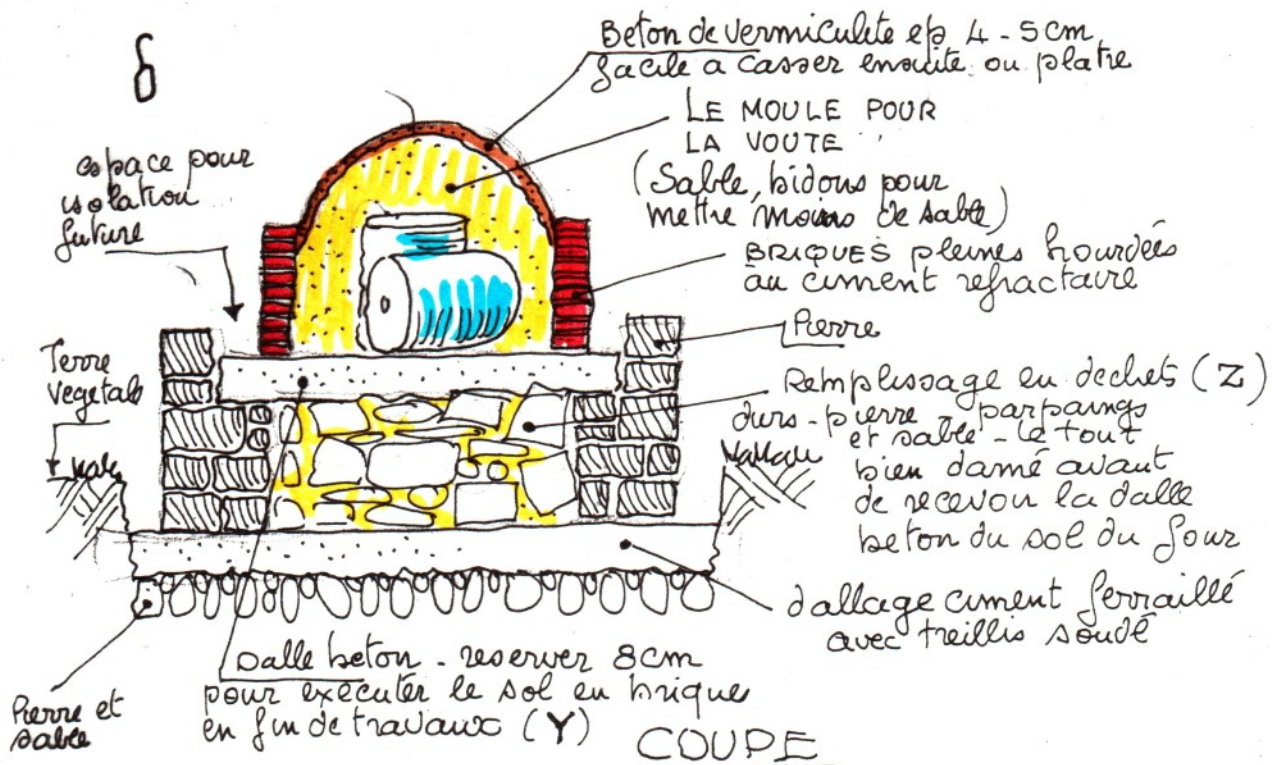 6
Beton de vermiculite ep 4 - 5 cm
facile a casser ensuite ou platre
LE MOULE POUR
LA VOUTE
(Sable, bidons pour
mettre moins de sable)
espace pour
isolation
future
BRIQUES pleines hourdées
au ciment refractaire
Pierre
Terre
vegetale
Remplissage en dechets (Z)
durs - pierre parpaings
et sable - le tout
bien damé avant
de recevoir la dalle
beton du sol du four
dallage ciment ferraillé
avec treillis soudé
Dalle beton - reserver 8cm
pour exécuter le sol en brique
en fin de travaux (Y)
Pierre et
sable
COUPE